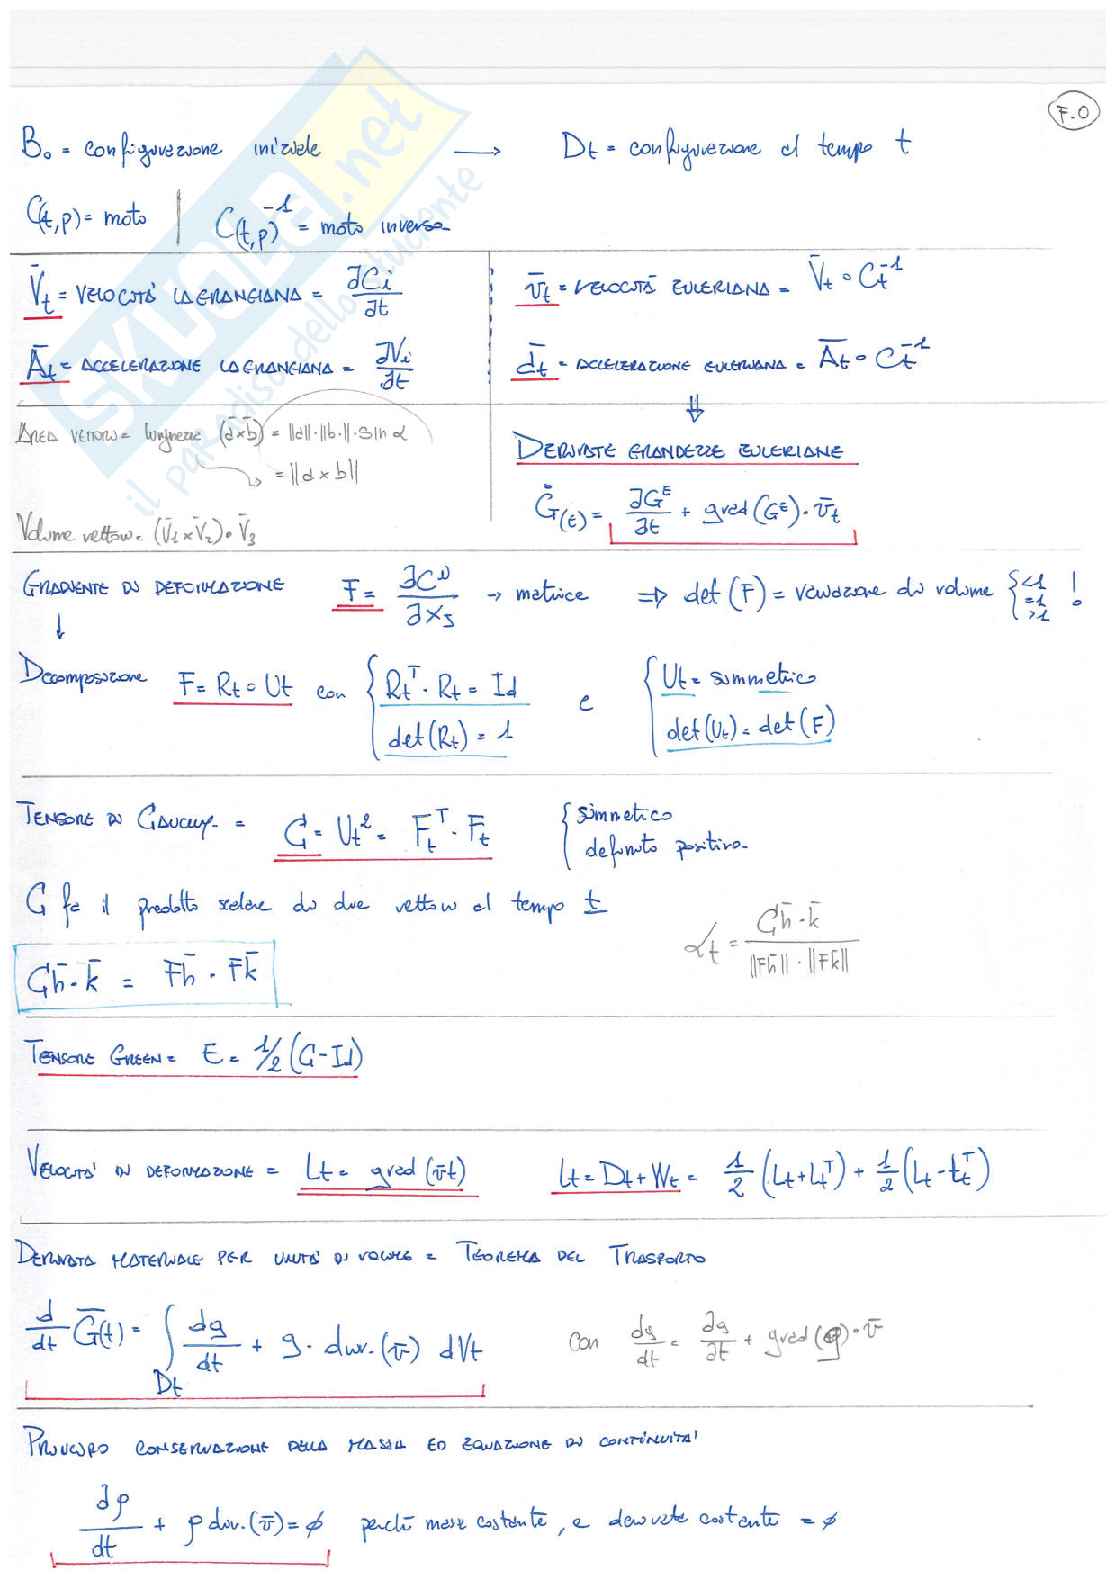 F.0
B₀ = configurazione iniziale → Dt = configurazione al tempo t
C(t,p) = moto | C(t,p)⁻¹ = moto inverso
V̄t = VELOCITÀ LAGRANGIANA = ∂Ci/∂t
v̄t = VELOCITÀ EULERIANA = V̄t ∘ Ct⁻¹
Āt = ACCELERAZIONE LAGRANGIANA = ∂Vi/∂t
āt = ACCELERAZIONE EULERIANA = Āt ∘ Ct⁻¹
⇓
AREA VETTORI = lunghezza (ā×b̄) = ||a||·||b||·sin α
= ||a×b||
Volume vettori = (V̄₁×V̄₂)•V̄₃
DERIVATE GRANDEZZE EULERIANE
Ġ(E) = ∂Gᴱ/∂t + grad(Gᴱ)·v̄t
GRADIENTE DI DEFORMAZIONE F = ∂C⁽ⁱ⁾/∂xs → matrice ⇒ det(F) = variazione di volume { <1 =1 >1 !
↓
Decomposizione F = Rt ∘ Ut con { Rtᵀ·Rt = Id det(Rt) = 1 e { Ut = simmetrico det(Ut) = det(F)
TENSORE DI CAUCHY = G = Ut² = Ftᵀ·Ft { simmetrico definito positivo
G fa il prodotto scalare di due vettori al tempo t
Gh̄·k̄ = Fh̄·Fk̄
αt = Gh̄·k̄ / ||Fh̄||·||Fk̄||
TENSORE GREEN = E = 1/2 (G-Id)
VELOCITÀ DI DEFORMAZIONE = Lt = grad(v̄t) Lt = Dt + Wt = 1/2 (Lt+Ltᵀ) + 1/2 (Lt-Ltᵀ)
DERIVATA MATERIALE PER UNITÀ DI VOLUME = TEOREMA DEL TRASPORTO
d/dt Ḡ(t) = ∫Dt dg/dt + g·div.(v̄) dVt con dg/dt = ∂g/∂t + grad(g)·v̄
PRINCIPIO CONSERVAZIONE DELLA MASSA ED EQUAZIONE DI CONTINUITÀ
dρ/dt + ρ div.(v̄) = ø perché massa costante, e derivata costante = ø
SKUOLA.net
il paradiso dello studente